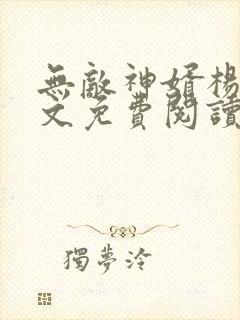 無敵神婿楊
文免費閱讀
獨夢泠